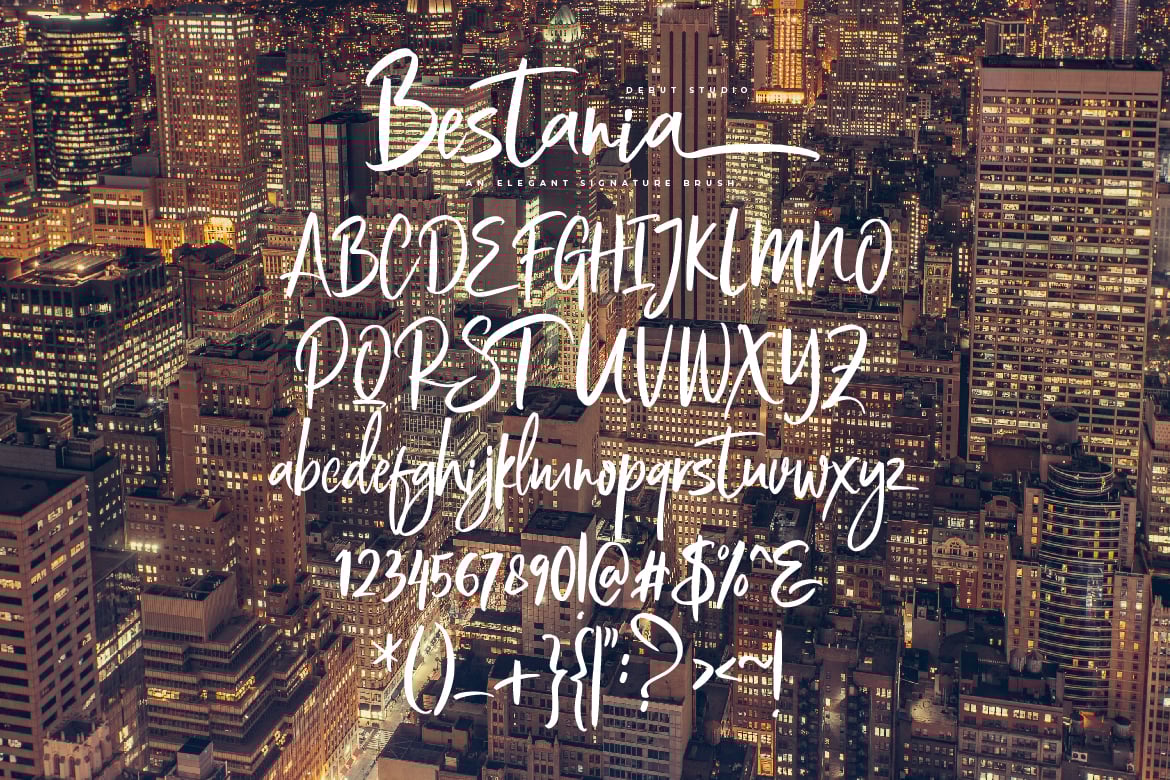 Bestania
DEBUT STUDIO
AN ELEGANT SIGNATURE BRUSH
ABCDEFGHIJKLMNO
PQRSTUVWXYZ
abcdefghijklmnopqrstuvwxyz
1234567890!@#$%^&
*()_+}{|":?><~!